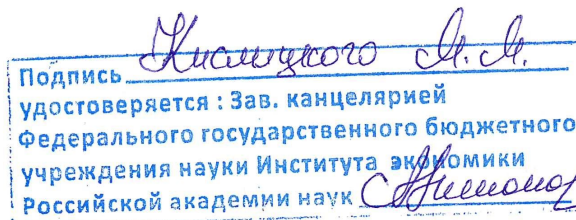 Подпись Кислицкого М. М.
удостоверяется : Зав. канцелярией
Федерального государственного бюджетного
учреждения науки Института экономики
Российской академии наук